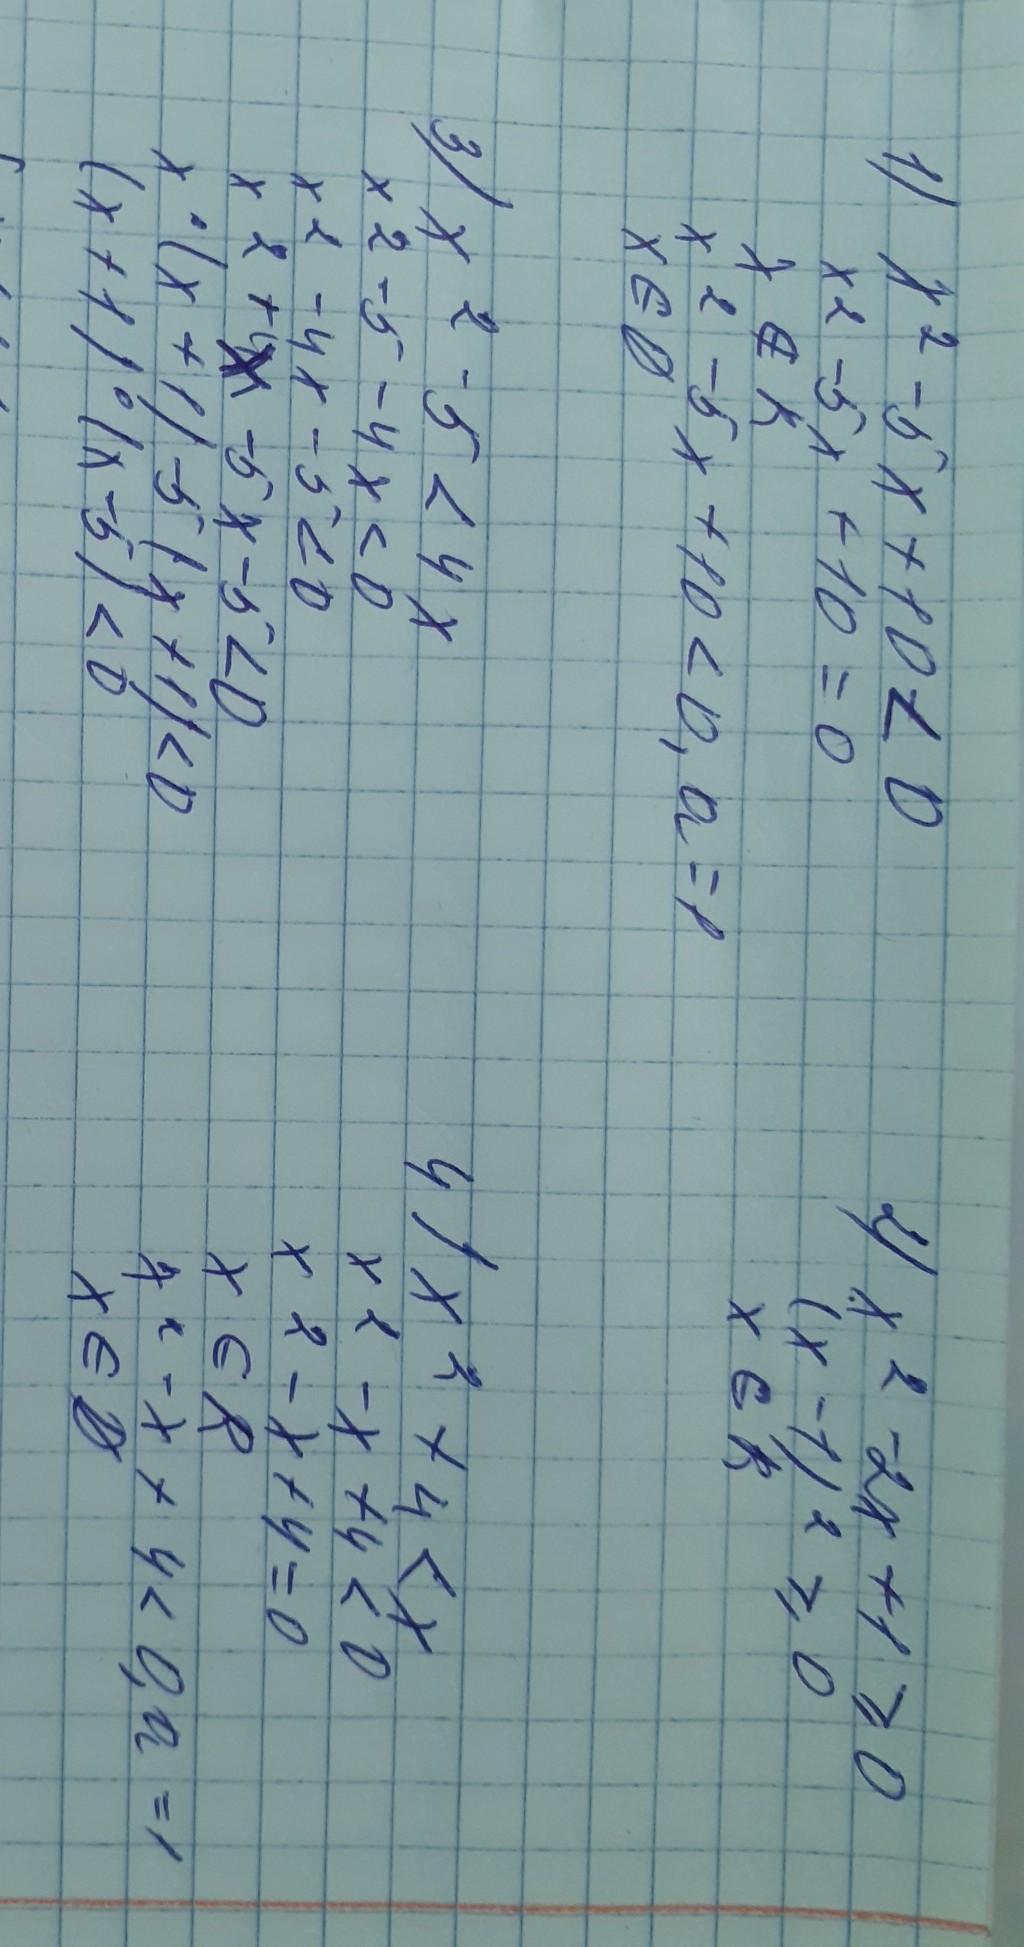 1) x² -5x +10 < 0
x² -5x +10 = 0
x ∉ R
x² -5x +10 < 0, a = 1
x ∈ ∅
2) x² -2x +1 ≥ 0
(x -1)² ≥ 0
x ∈ R
3) x² -5 < 4x
x² -5 -4x < 0
x² -4x -5 < 0
x² +x -5x -5 < 0
x·(x +1) -5(x +1) < 0
(x +1)·(x -5) < 0
4) x² +4 < x
x² -x +4 < 0
x² -x +4 = 0
x ∈ R
x² -x +4 < 0, a = 1
x ∈ ∅